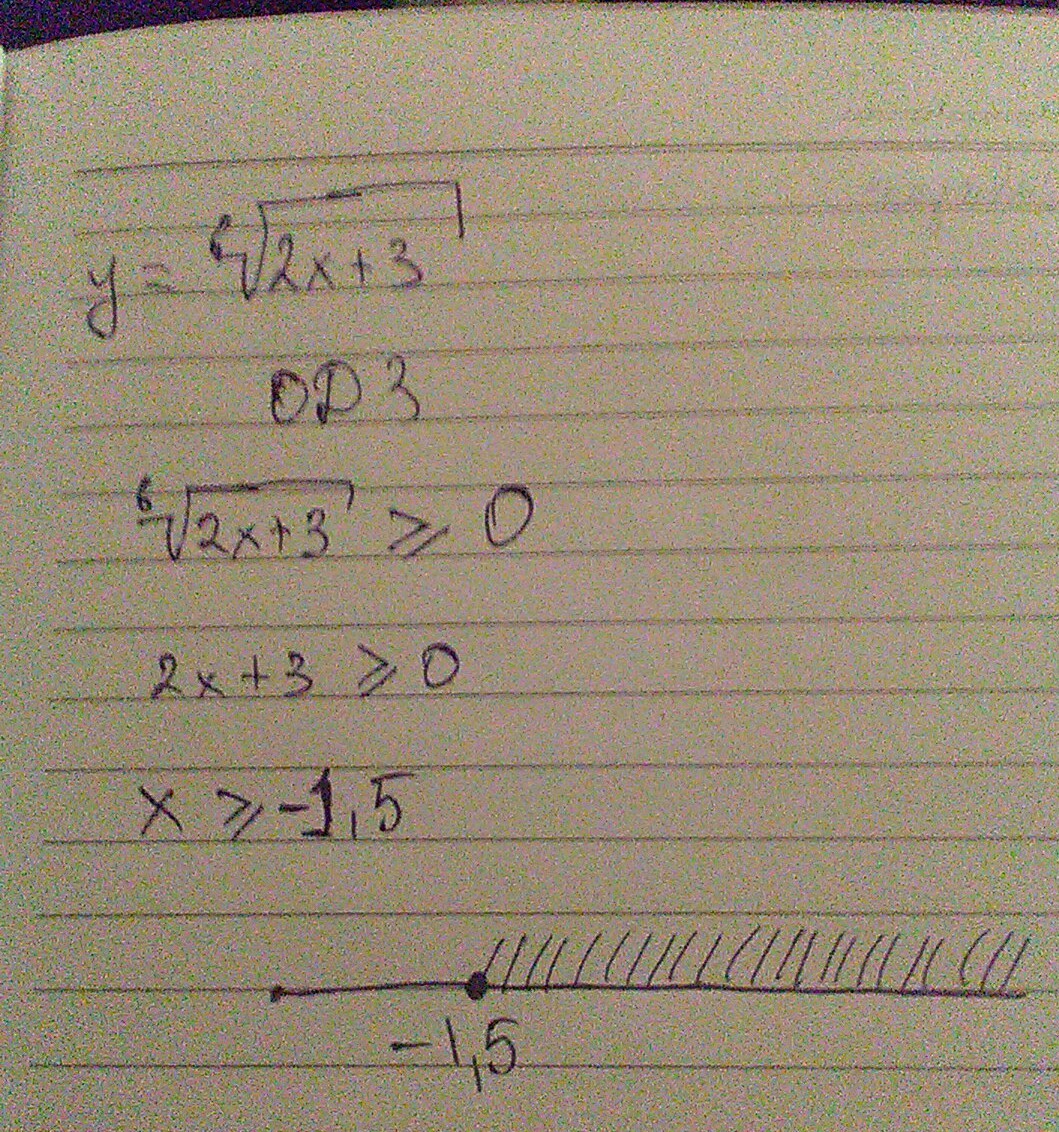 y = ⁶√2x+3
ОДЗ
⁶√2x+3 ⩾ 0
2x+3 ⩾ 0
x ⩾ -1,5
-1,5